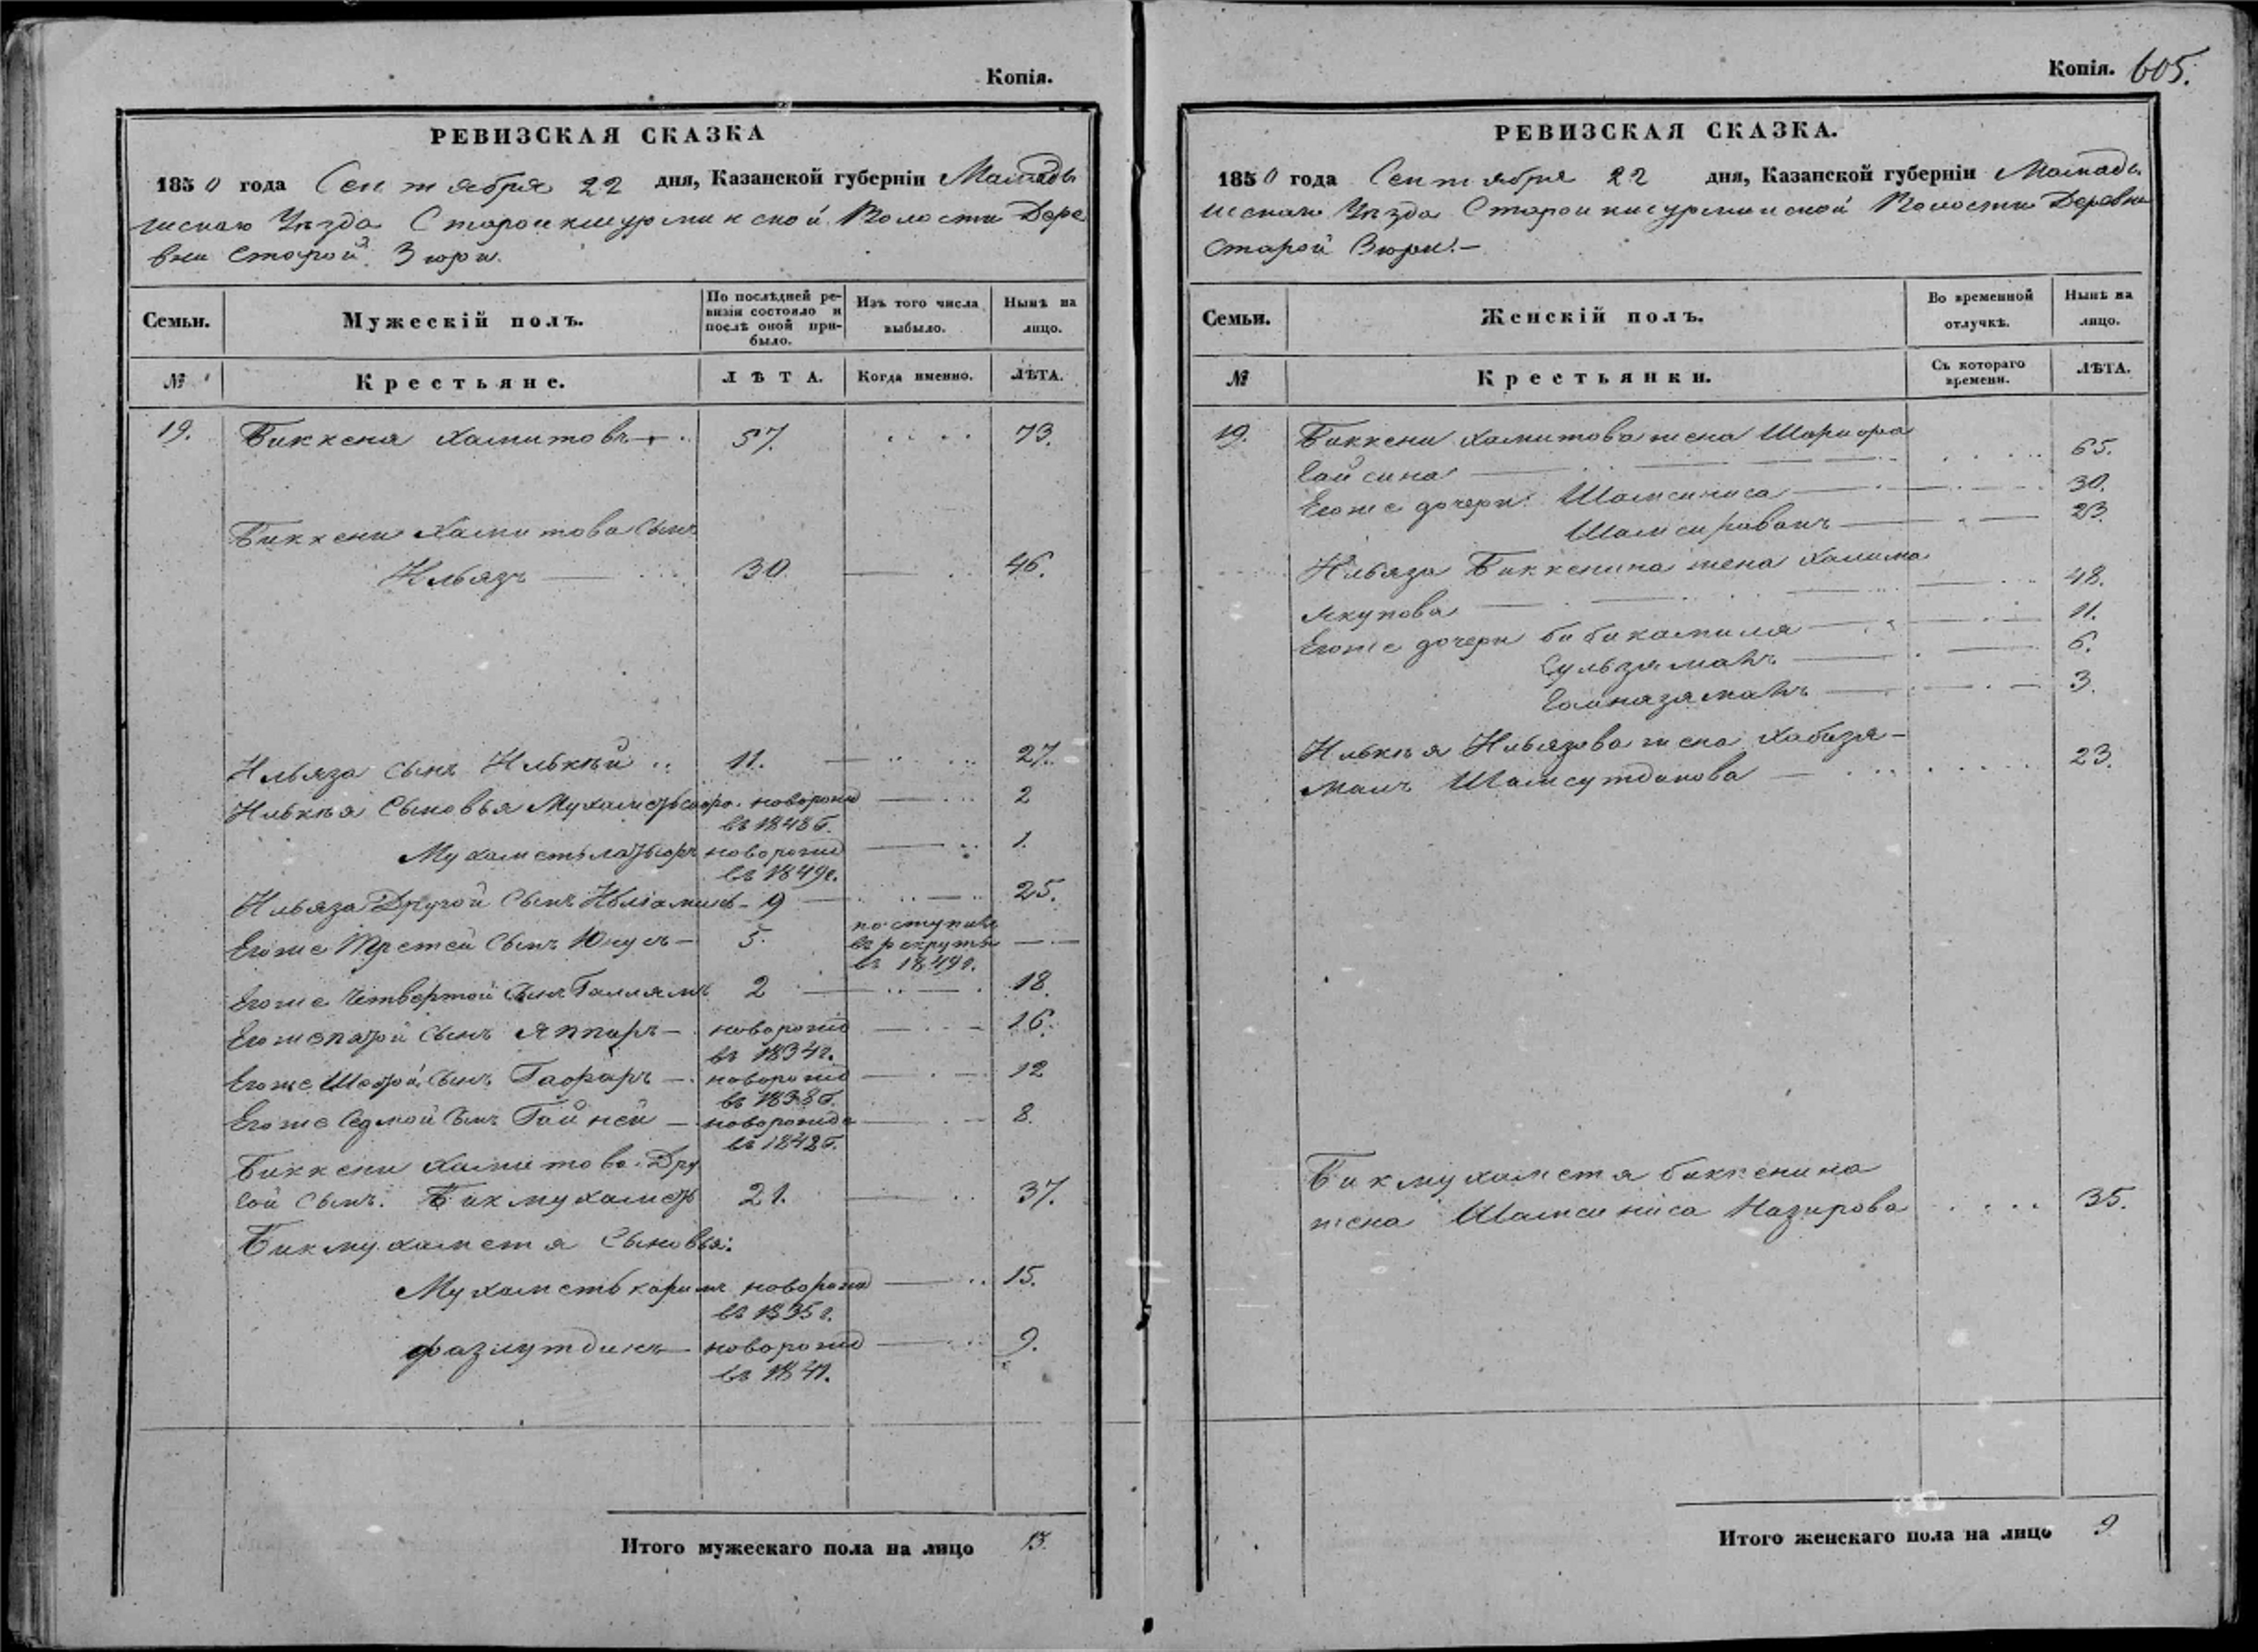 Копія.
РЕВИЗСКАЯ СКАЗКА
1850 года Сентября 22 дня, Казанской губерніи Мамады
шскаго Уѣзда Староикшурминской Волости Дере
вни Старой Зюри.
Семьи.
Мужескій полъ.
По послѣдней ре-
визіи состояло и
послѣ оной при-
было.
Изъ того числа
выбыло.
Ныне на
лицо.
№
Крестьяне.
ЛѢТА.
Когда именно.
ЛѢТА.
19. Биккеня Хамитовъ 57. 73.
Биккени Хамитова сынъ
Ильязъ 30. 46.
Ильяза сынъ Илькѣй 11. 27.
Илькѣя Сыновья новорожд 2
въ 1848 г.
новорожд 1.
въ 1849 г.
Ильяза Другой Сынъ 9 25.
поступилъ
Егоже Третей Сынъ Юнусъ 5. въ рекруты
въ 1849 г.
Егоже Четвертой Сынъ Галлямъ 2 18.
Егоже пятой Сынъ Яппаръ новорожд 16.
въ 1834 г.
Егоже Шестой Сынъ Гафаръ новорожд 12
въ 1838 г.
Егоже Седмой Сынъ Гайней новорожде 8.
въ 1842 г.
Биккени Хамитова Дру
гой Сынъ. Бикмухаметь 21. 37.
Бикмухаметя Сыновья:
Мухаметькаримъ новорожд 15.
въ 1835 г.
Фазлутдинъ новорожд 9.
въ 1841.
Итого мужескаго пола на лицо 13.
Копія. 605.
РЕВИЗСКАЯ СКАЗКА.
1850 года Сентября 22 дня, Казанской губерніи Мамады
шскаго Уѣзда Староикшурминской Волости Деревни
Старой Зюри.
Семьи.
Женскій полъ.
Во временной
отлучкѣ.
Ныне на
лицо.
№
Крестьянки.
Съ котораго
времени.
ЛѢТА.
19. Биккени Хамитова жена
Гайсина 65.
Егоже дочери: Шамсиниса 30.
23.
Ильяза Биккенина жена Халима
Якупова 48.
Егоже дочери Бибикамиля 11.
6.
3.
Илькѣя Ильязова жена Хабизя-
малъ Шамсутдинова 23.
Бикмухаметя Биккенина
жена Шамсиниса Назирова 35.
Итого женскаго пола на лицо 9